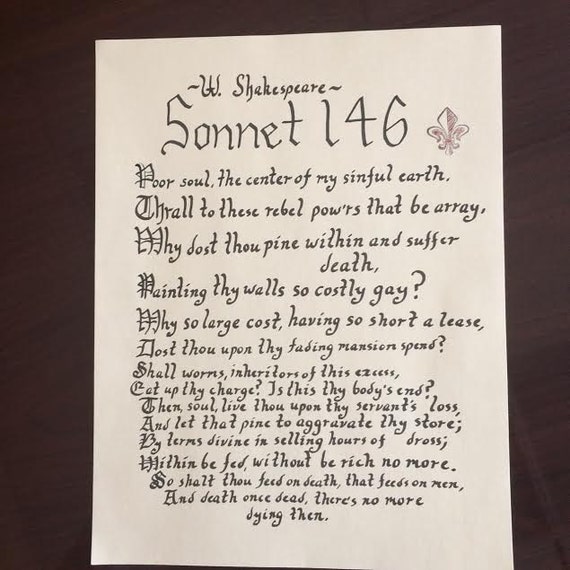 ~W. Shakespeare~
Sonnet 146
Poor soul, the center of my sinful earth.
Thrall to these rebel pow'rs that be array,
Why dost thou pine within and suffer
death,
Painting thy walls so costly gay?
Why so large cost, having so short a lease,
Dost thou upon thy fading mansion spend?
Shall worms, inheritors of this excess,
Eat up thy charge? Is this thy body's end?
Then, soul, live thou upon thy servant's loss,
And let that pine to aggravate thy store;
By terms divine in selling hours of dross;
Within be fed, without be rich no more.
So shalt thou feed on death, that feeds on men,
And death once dead, there's no more
dying then.